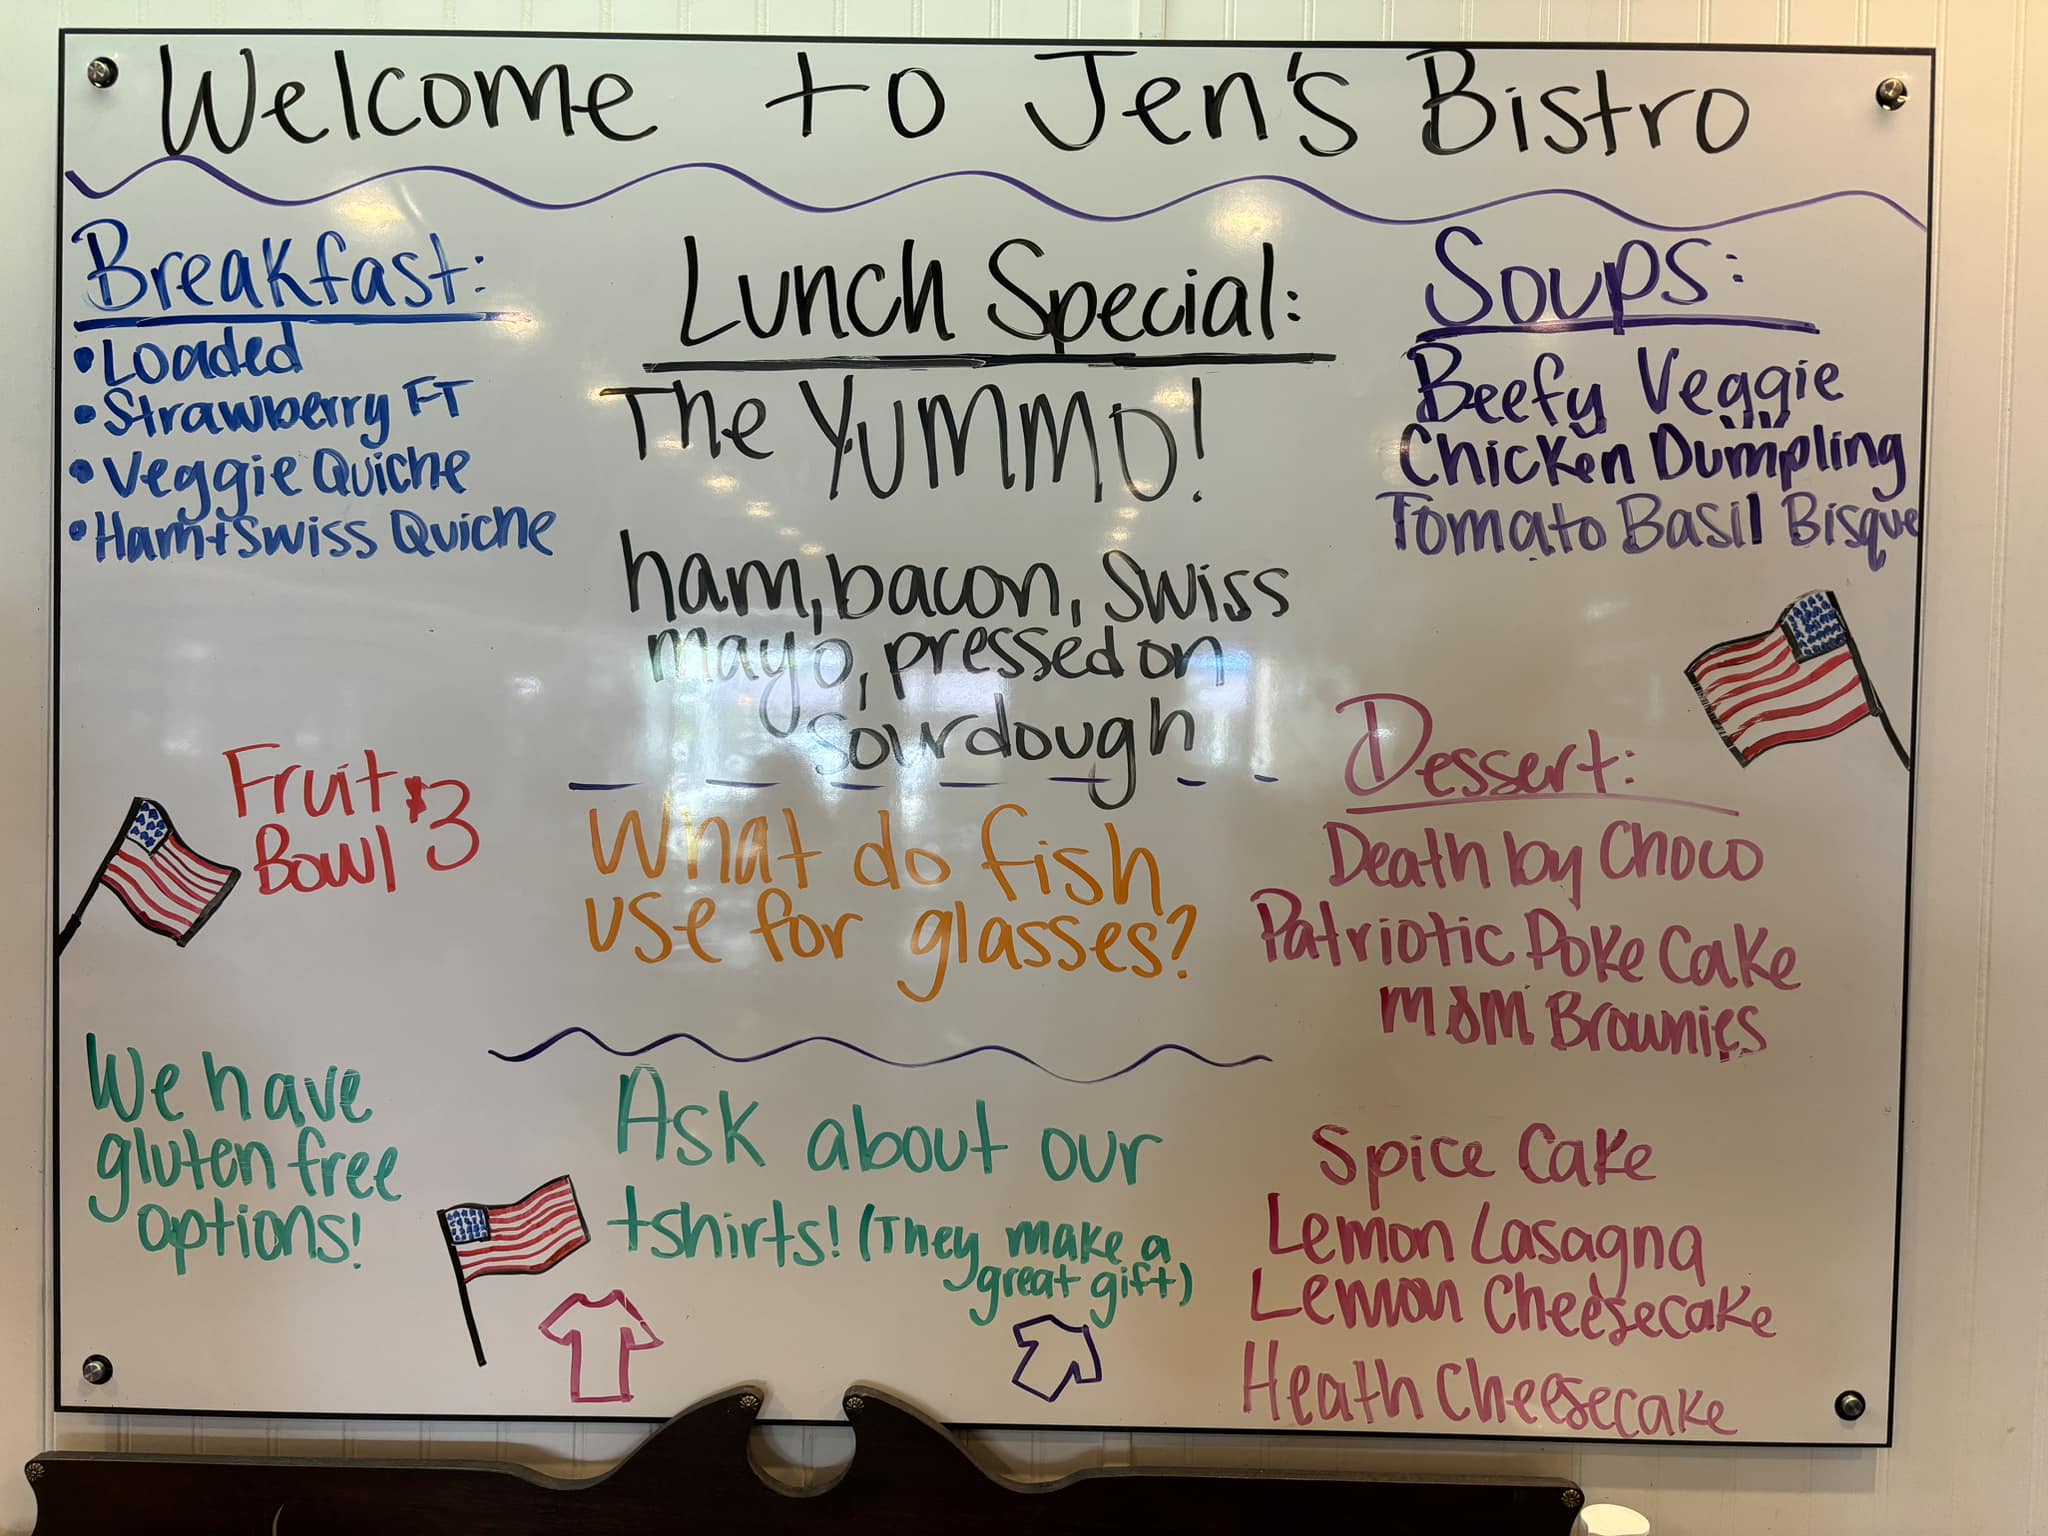 Welcome to Jen's Bistro
Breakfast:
•Loaded
•Strawberry FT
•Veggie Quiche
•Ham+Swiss Quiche
Fruit $3
Bowl
We have
gluten free
options!
Lunch Special:
The YUMMO!
ham, bacon, swiss
mayo, pressed on
sourdough
What do fish
use for glasses?
Ask about our
tshirts! (They make a
great gift)
Soups:
Beefy Veggie
Chicken Dumpling
Tomato Basil Bisque
Dessert:
Death by Choco
Patriotic Poke Cake
M&M Brownies
Spice Cake
Lemon Lasagna
Lemon Cheesecake
Heath Cheesecake